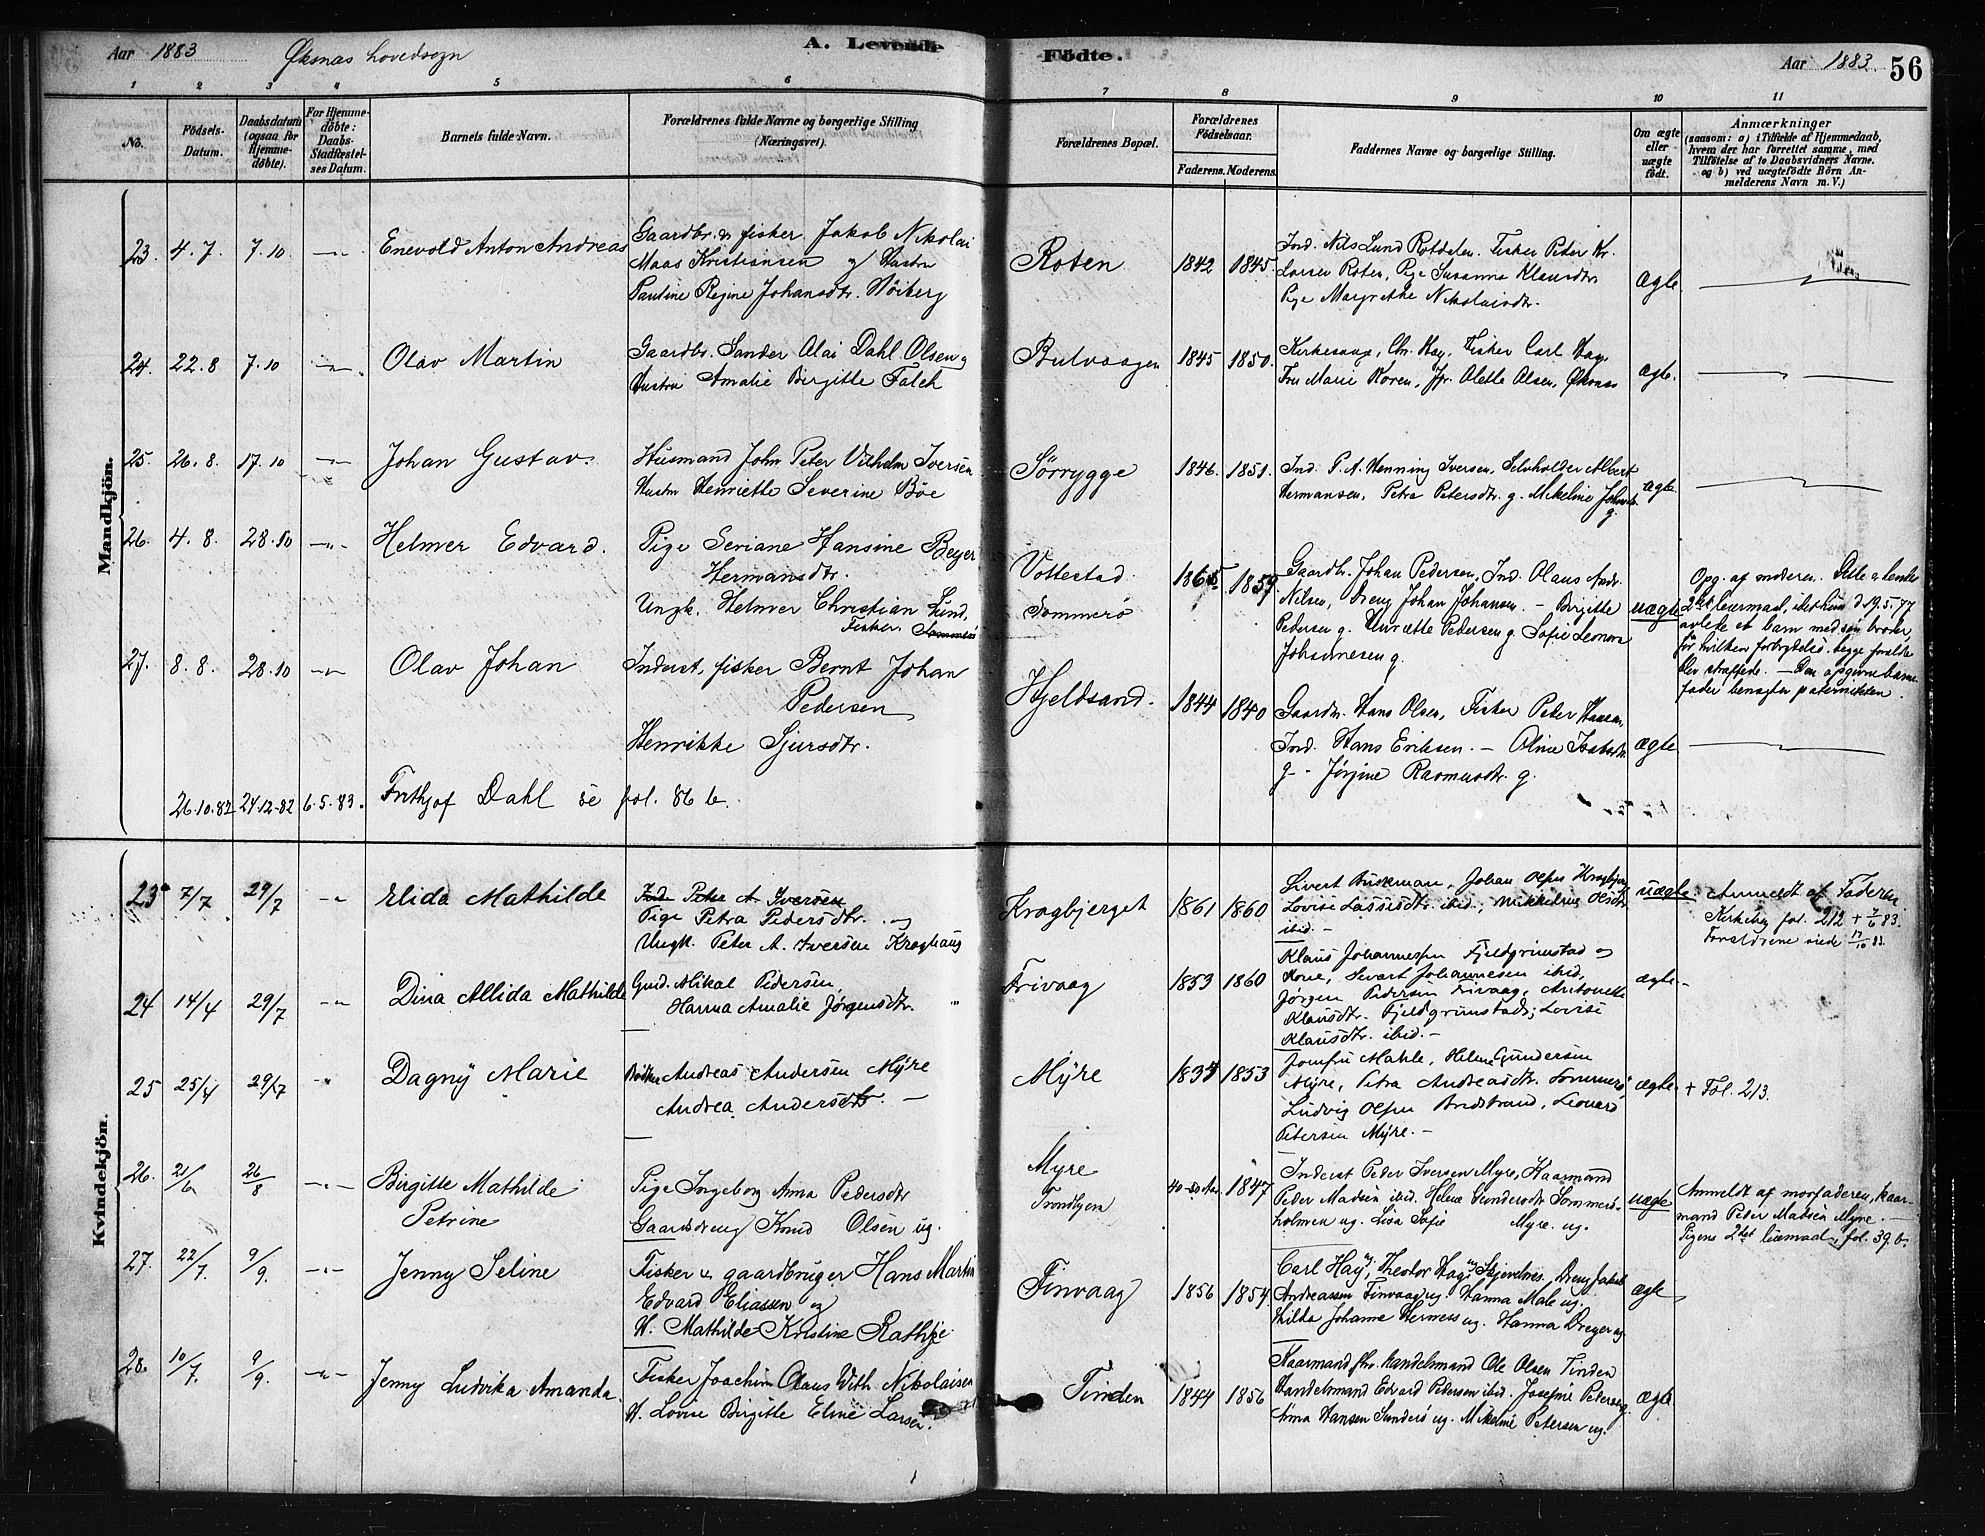 Aar 1883 Øksnæs hovedsogn
A. Levende Födte.
Aar 1883. 56
1 2 3 4 5 6 7 8 9 10 11
No.
Födsels-Datum.
Daabsdatum (ogsaa for Hjemme-döbte).
For Hjemme-döbte: Daabs-Stadfæstel-ses Datum.
Barnets fulde Navn.
Forældrenes fulde Navne og borgerlige Stilling (Næringsvei).
Forældrenes Bopæl.
Forældrenes Födselsaar.
Faderens. Moderens.
Faddernes Navne og borgerlige Stilling.
Om ægte eller uægte födt.
Anmærkninger
(saasom: a) i Tilfælde af Hjemmedaab, hvem der har forrettet samme, med Tilföielse af to Daabsvidners Navne. og b) ved uægtefödte Börn An-melderens Navn m. V.)
Mandkjön.
23. 4.7. 7.10 —"— Enevold Anton Andreas
Gaardbr. & fisker Jakob Nikolai
Maas Kristiansen og Hustru
Pauline Regine Johansdtr. Höiberg
Roten 1842 1845.
Ind. Nils Lund Rotdalen. Fisker Peter Kr.
Larsen Roten, Pige Susanna Klausdtr
Pige Margrethe Nikolaisdtr.
ægte
24. 22.8 7.10 —"— Olav Martin
Gaardbr. Sander Olai Dahl Olsen og
Hustru Amalie Birgitte Falch
Bulvaagen 1845 1850.
Kirkesang. Chr. Hay, Fisker Carl Hay.
Fru Marie Koren, Jfr. Olette Olsen, Øksnæs
ægte.
25. 26.8. 17.10 —"— Johan Gustav.
Husmand John Peter Vilhelm Iversen
Hustru Henriette Severine Böe
Sörrygge 1846. 1851.
Ind. P. A. Henning Iversen, Selvholder Albert
Hermansen, Petra Petersdtr. g. Mikeline Johnsdtr.
g.
ægte
26. 4.8. 28.10 —"— Helmer Edvard.
Pige Seriane Hansine Beyer
Hermansdtr.
Ungk. Helmer Christian Lund,
Fisker. Sommerö
Vottestad
Sommerö
1865 1859
Gaardbr. Johan Pedersen, Ind. Olaus Andr.
Nilsen, Dreng Johan Johansen. — Birgitte
Pedersen g. Henriette Pedersen g. Sofie Leonora
Johannesen g.
uægte
Opg. af moderen. Dette er hendes
2det leiermaal, idet hun d 19.5.77
avlede et barn med sin broder,
for hvilken forbrydelse begge forældre
blev straffede. — Den opgivne barne-
fader benægter paterniteten.
27. 8.8. 28.10 —"— Olav Johan
Inderst, fisker Bernt Johan
Pedersen
Henrikke Sjursdtr.
Hjeldsand. 1844 1840
Gaardbr. Hans Olsen, Fisker Peter Hansen,
Ind. Hans Eriksen. — Oline Isaksdtr.
g — Jörgine Rasmusdtr. g.
ægte
26.10.82 24.12.82 6.5.83. Frithjof Dahl se fol. 86 b.
Kvindekjön.
23 7/7 29/7 —"— Elida Mathilde
Ind. Peter A Iversen
Pige Petra Pedersdtr. og
Ungk. Peter A. Iversen Kroghaug
Kragbjerget 1861 1860
Sivert Buskman, Johan Olsen Kragbjerg
Lovise Lassesdtr. ibid, Mikkeline Olsdtr
ibid. —
uægte.
Anmeldt af Faderen
Kirkebog fol. 212 + 7/6 83.
Forældrene viede 17/10 83.
24 14/4 29/7 —"— Dina Allida Mathilde
Gmd. Mikal Pedersen,
Hanna Amalie Jörgensdtr. "
Frivaag 1853 1860
Klaus Johannessen Fjeldgrimstad og
Kone, Sivart Johannesen ibid,
Jörgen Pedersen Frivaag, Antonette
Klausdtr. Fjeldgrimstad; Lovise
Klausdtr. ibid. —
ægte.
25 25/4 29/7 —"— Dagny Marie
Andreas Andersen Myre
Andrea Andersdtr. —
Myre 1853
Jomfru Mahle, Helene Gundersen
Myre, Petra Andreasdtr. Sommerö
Ludvig Olsen Bredstrand, Leonard
Petersen Myre. —
ægte
+ Fol. 213.
26. 21/6 26/8 —"— Birgitte Mathilde
Petrine
Pige Ingeborg Anna Pedersdtr
Gaardsdreng Knud Olsen ug.
Myre
Trondhjem
40-50 Aar. 1847
Inderst Peder Iversen Myre, Kaarmand
Peder Madsen ibid. Helene Gundersdtr Sommerö-
holmen ug. Lisa Sofie Myre. ug.
uægte
Anmeldt af morfaderen, kaar-
mand Peder Madsen Myre. —
Pigens 2det leiermaal, fol. 39 b.
27. 22/7. 9/9. —"— Jenny Seline
Fisker & gaardbruger Hans Martin
Edvard Eliassen og
H. Mathilde Kristine Rathje
Finvaag 1856 1854
Carl Hay, Theodor Hay ug Skjendnes, Dreng Jakob
Andreassen Finvaag ug. Hanna Male ug.
Hilda Johanne Hermess ug. Hanna Dreyer ug
ægte
28. 10/7. 9/9. —"— Jenny Ludvika Amanda.
Fisker Joachim Olaus With Nikolaisen
H. Lovise Birgitte Eline Larsen.
Tinden 1844 1856
Kaarmand fhv. Handelsmand Ole Olsen Tinden
Handelsmand Edvard Pedersen ibid. Josefine Pedersen g.
Anna Hansen Sunderö ug. Mikeline Petersen ug.
ægte